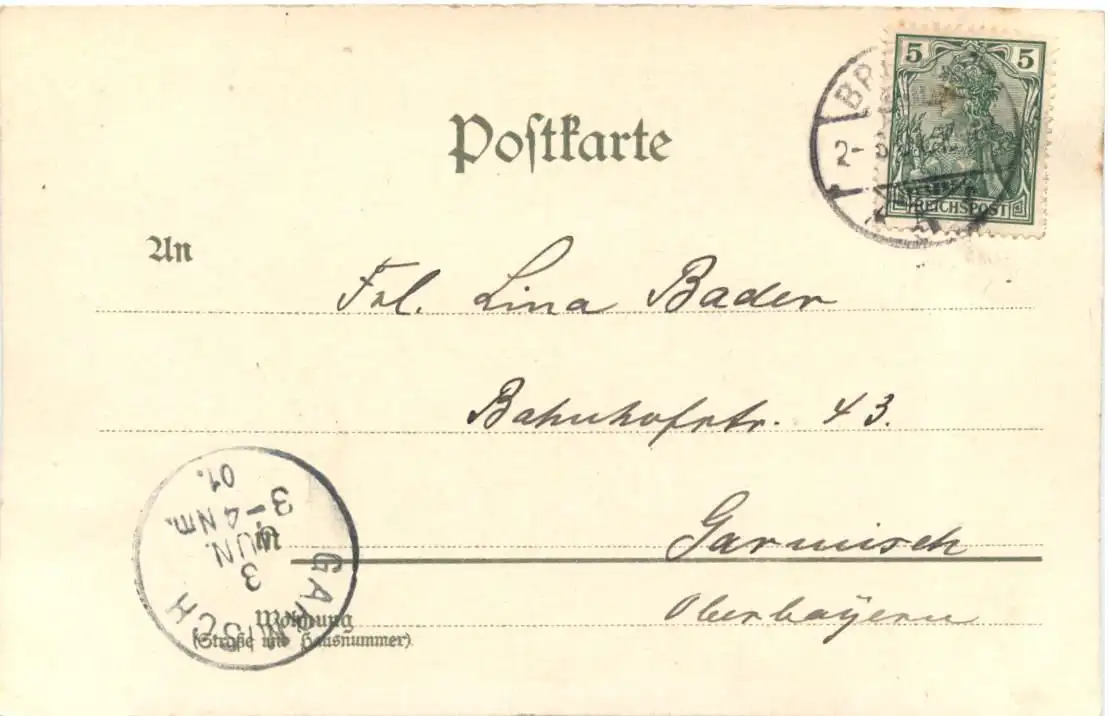 5 5
REICHSPOST
Postkarte
An
Frl. Lina Bader
Bahnhofstr. 43.
in
Garmisch
Oberbayern
Wohnung
(Straße und Hausnummer)
GARMISCH
3
JUN.
3-4 Nm.
01.